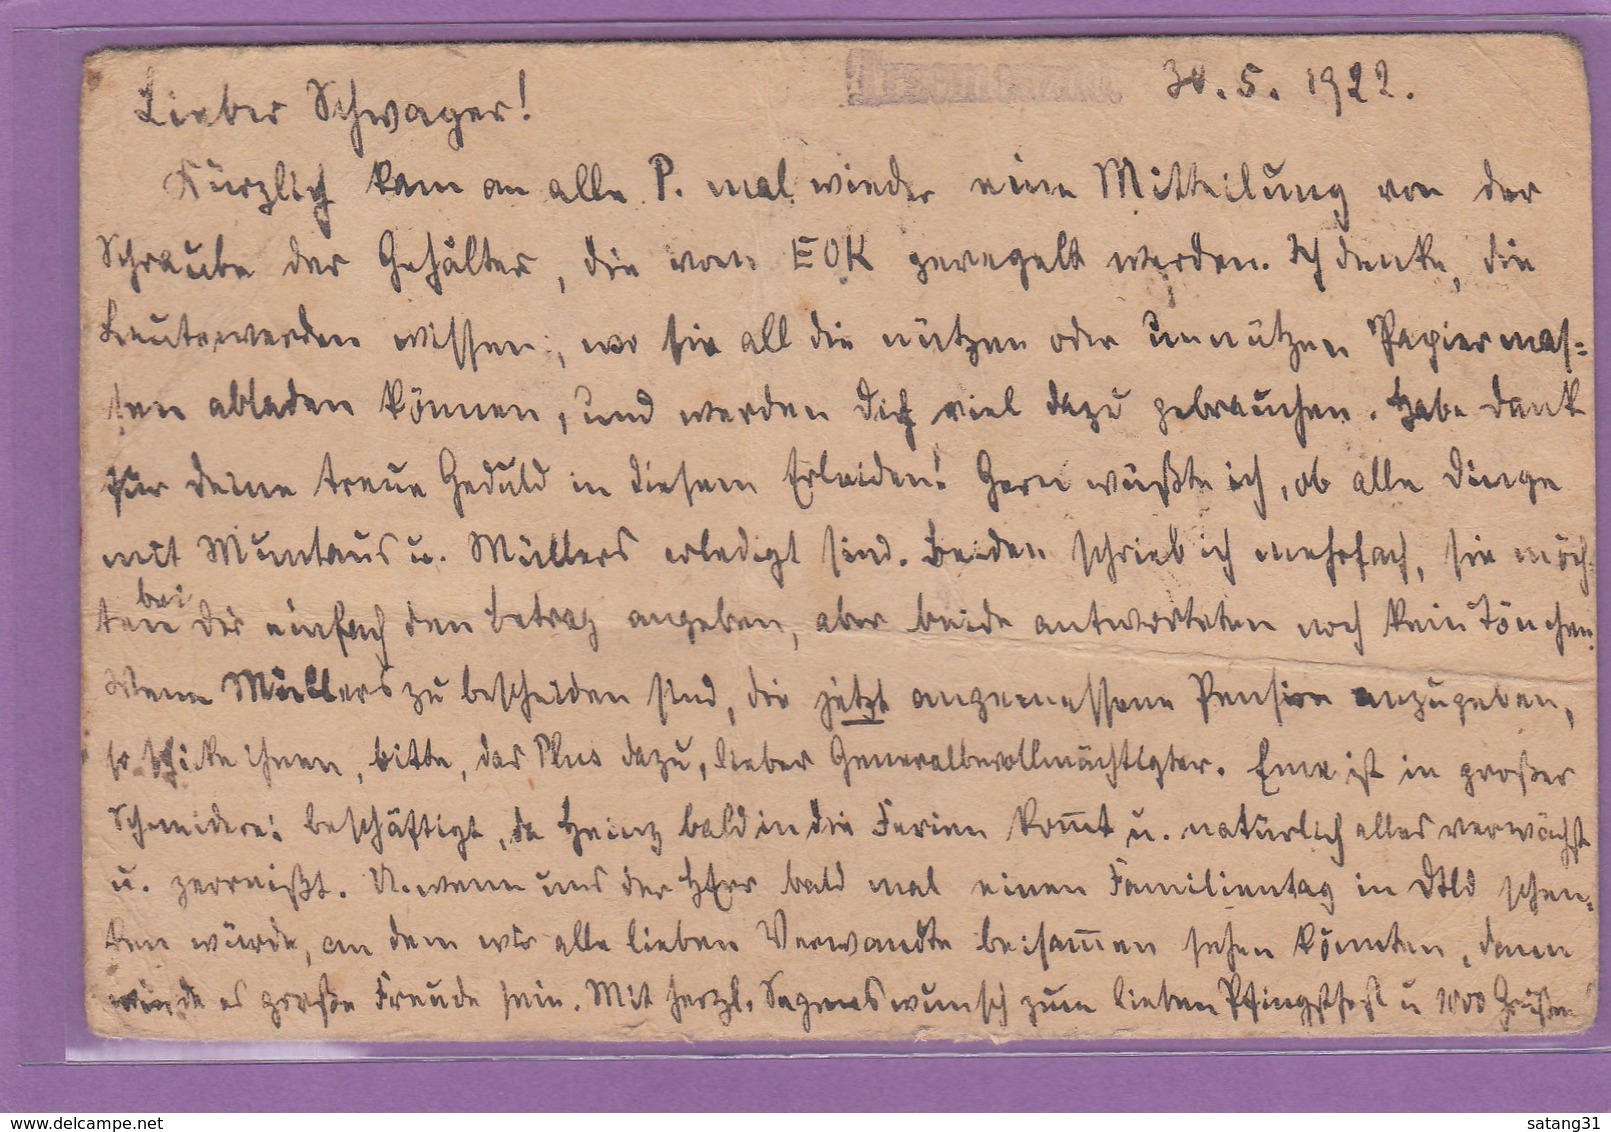 30. 5. 1922.
Lieber Schwager!
Kürzlich kam an alle P. mal wieder eine Mitteilung von der
Schraube der Gehälter, die vom EOK geregelt werden. Ich denke, die
Leute werden wissen, wo sie all die nützen oder unnützen Papiermas=
sen abladen können, und werden Dich viel dazu gebrauchen. Habe Dank
für Deine treue Geduld in diesem Erleiden! Gern wüßte ich, ob alle Dinge
mit u. Müllers erledigt sind. Beiden schrieb ich mehrfach, sie möch=
ten bei Dir einfach den Betrag angeben, aber beide antworteten noch kein Tönchen.
Wenn Müllers zu bescheiden sind, die jetzt angemessene Pension anzugeben,
so schicke ihnen, bitte, das Plus dazu, lieber Generalbevollmächtigter. ist in großer
Schneiderei beschäftigt, da Heinz bald in die Ferien kom̅t u. natürlich alles verwächst
u. zerreißt. U. wenn uns der HErr bald mal einen Familientag in Dtld schen=
ken würde, an dem wir alle lieben Verwandte beisam̅en sehen könnten, dann
würde es große Freude sein. Mit herzl. Segenswunsch zum lieben Pfingstfest u 1000 Grüßen
satang31